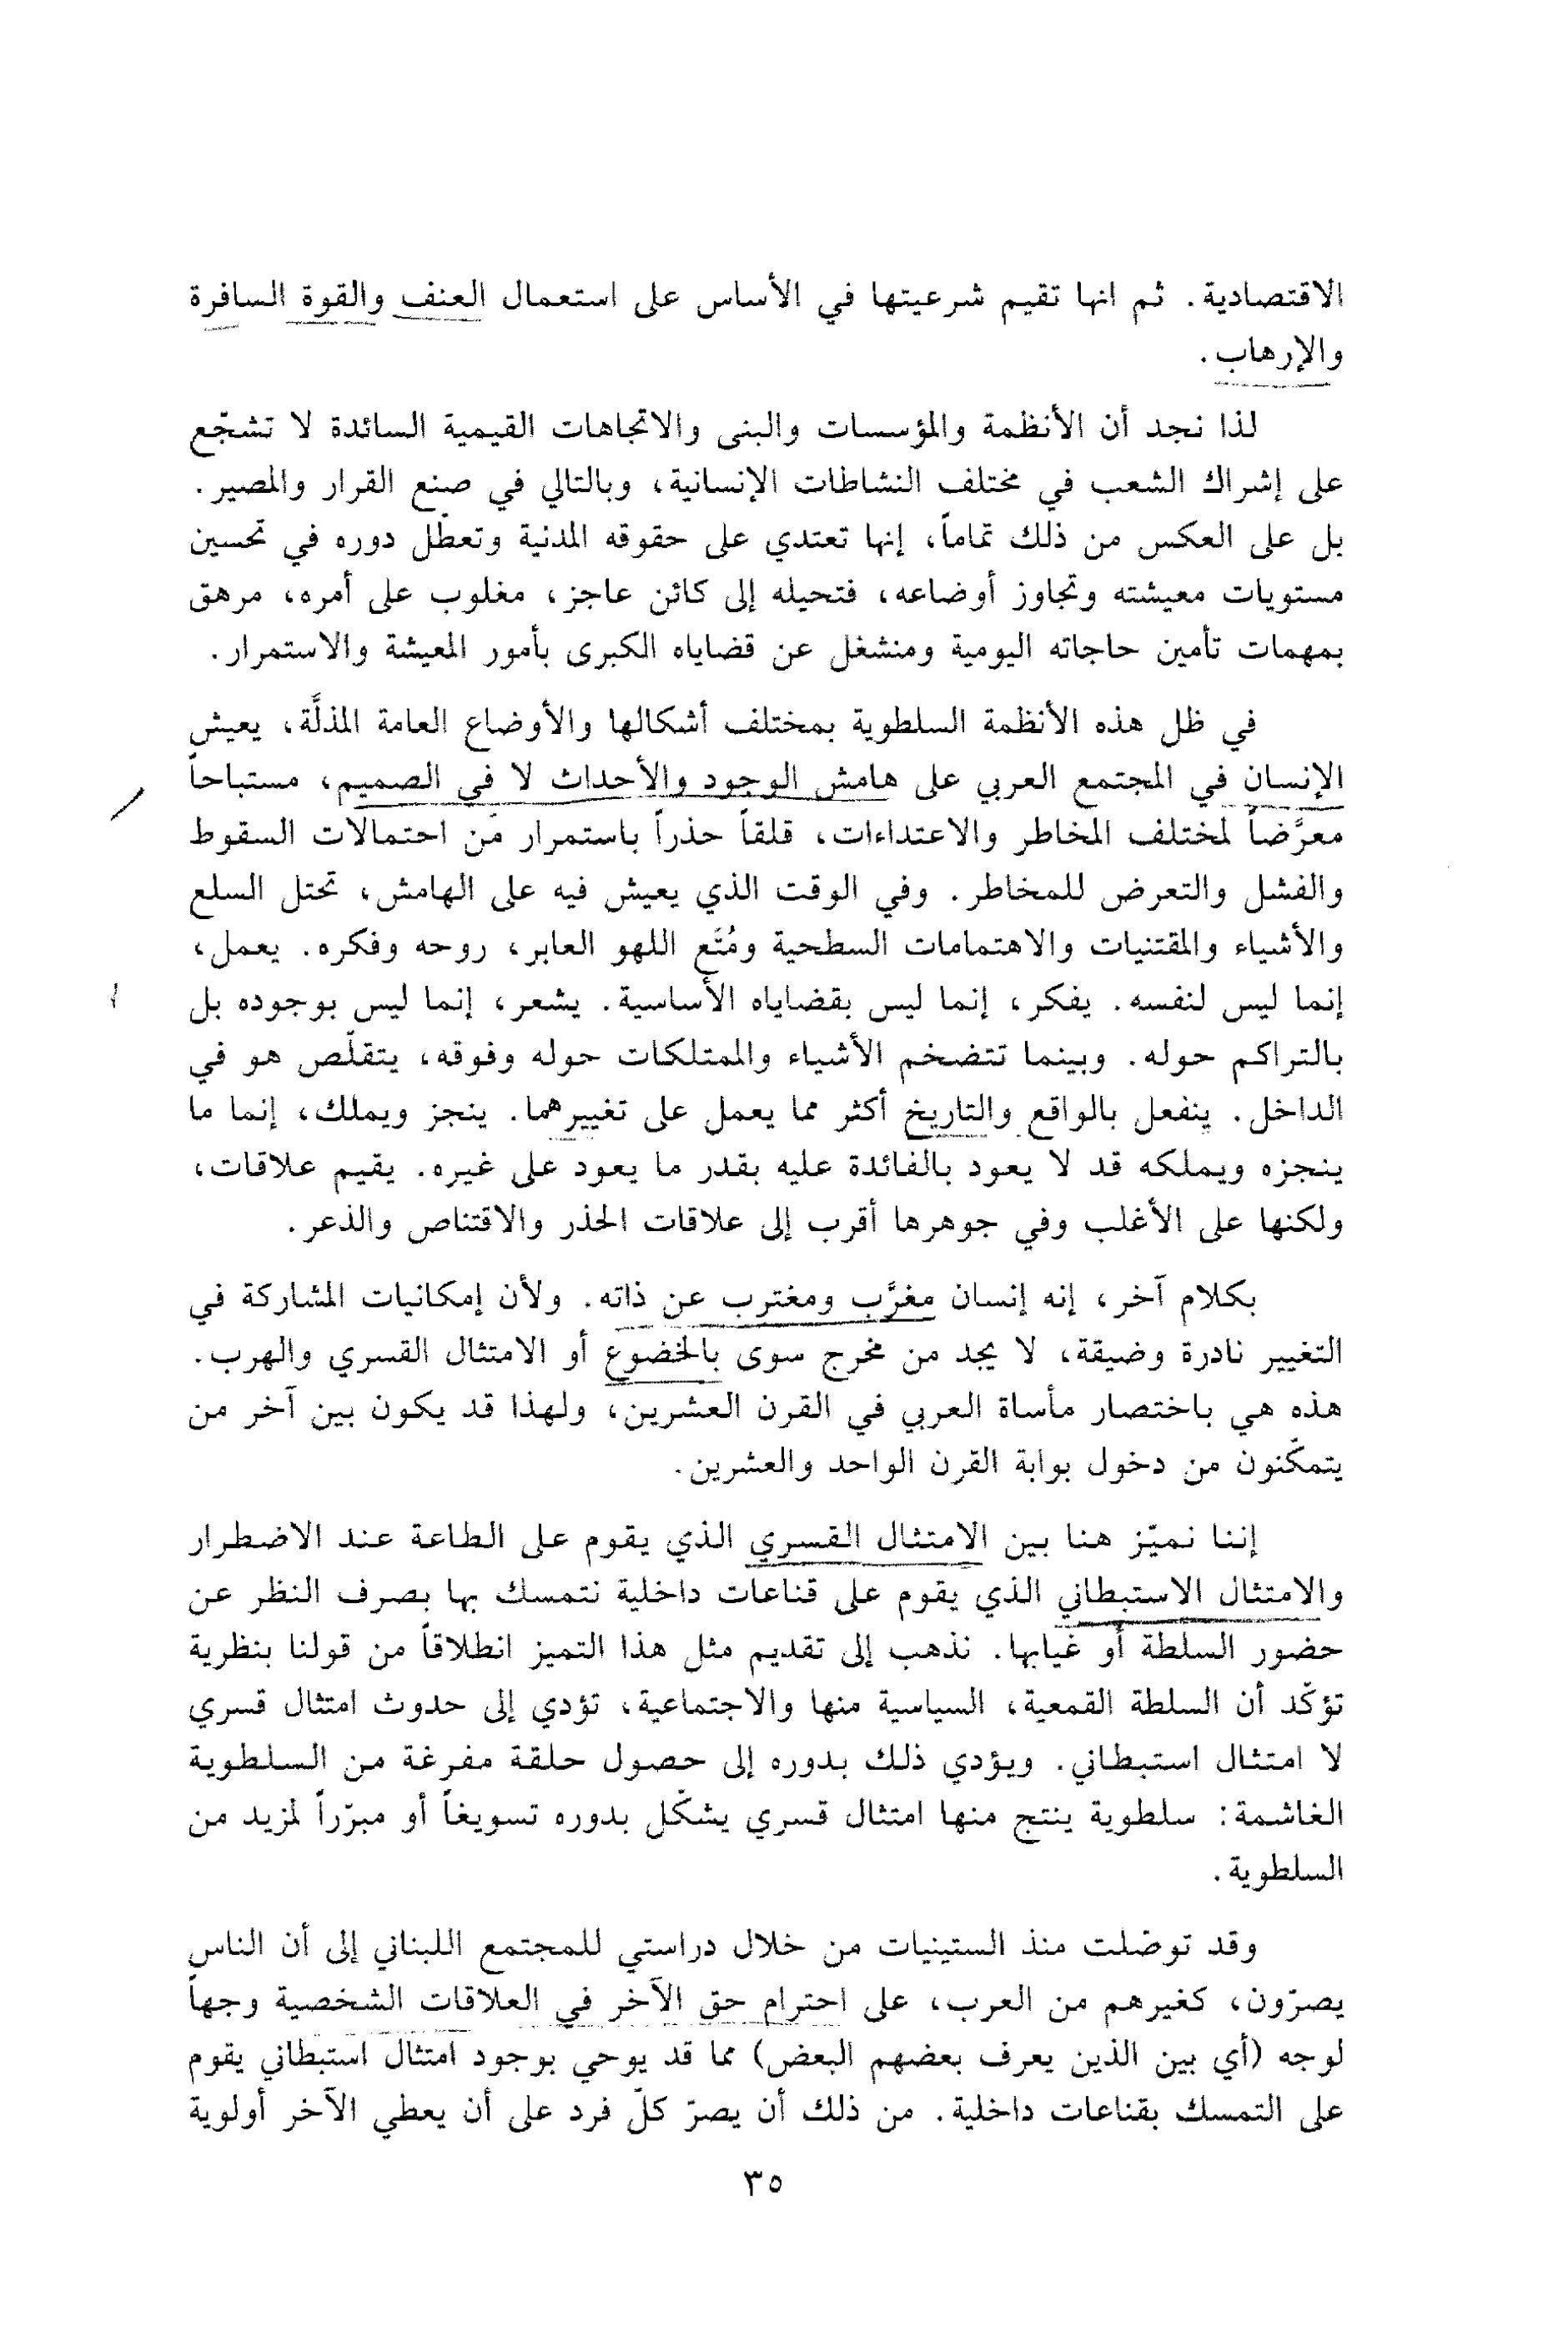 الاقتصادية. ثم انها تقيم شرعيتها في الأساس على استعمال العنف والقوة السافرة
والإرهاب.
لذا نجد أن الأنظمة والمؤسسات والبنى والاتجاهات القيمية السائدة لا تشجّع
على إشراك الشعب في مختلف النشاطات الإنسانية، وبالتالي في صنع القرار والمصير.
بل على العكس من ذلك تماماً، إنها تعتدي على حقوقه المدنية وتعطّل دوره في تحسين
مستويات معيشته وتجاوز أوضاعه، فتحيله إلى كائن عاجز، مغلوب على أمره، مرهق
بمهمات تأمين حاجاته اليومية ومنشغل عن قضاياه الكبرى بأمور المعيشة والاستمرار.
في ظل هذه الأنظمة السلطوية بمختلف أشكالها والأوضاع العامة المذلَّة، يعيش
الإنسان في المجتمع العربي على هامش الوجود والأحداث لا في الصميم، مستباحاً
معرَّضاً لمختلف المخاطر والاعتداءات، قلقاً حذراً باستمرار من احتمالات السقوط
والفشل والتعرض للمخاطر. وفي الوقت الذي يعيش فيه على الهامش، تحتل السلع
والأشياء والمقتنيات والاهتمامات السطحية ومُتَع اللهو العابر، روحه وفكره. يعمل،
إنما ليس لنفسه. يفكر، إنما ليس بقضاياه الأساسية. يشعر، إنما ليس بوجوده بل
بالتراكم حوله. وبينما تتضخم الأشياء والممتلكات حوله وفوقه، يتقلّص هو في
الداخل. ينفعل بالواقع والتاريخ أكثر مما يعمل على تغييرهما. ينجز ويملك، إنما ما
ينجزه ويملكه قد لا يعود بالفائدة عليه بقدر ما يعود على غيره. يقيم علاقات،
ولكنها على الأغلب وفي جوهرها أقرب إلى علاقات الحذر والاقتناص والذعر.
بكلام آخر، إنه إنسان مغرَّب ومغترب عن ذاته. ولأن إمكانيات المشاركة في
التغيير نادرة وضيقة، لا يجد من مخرج سوى بالخضوع أو الامتثال القسري والهرب.
هذه هي باختصار مأساة العربي في القرن العشرين، ولهذا قد يكون بين آخر من
يتمكّنون من دخول بوابة القرن الواحد والعشرين.
إننا نميّز هنا بين الامتثال القسري الذي يقوم على الطاعة عند الاضطرار
والامتثال الاستبطاني الذي يقوم على قناعات داخلية نتمسك بها بصرف النظر عن
حضور السلطة أو غيابها. نذهب إلى تقديم مثل هذا التميز انطلاقاً من قولنا بنظرية
تؤكّد أن السلطة القمعية، السياسية منها والاجتماعية، تؤدي إلى حدوث امتثال قسري
لا امتثال استبطاني. ويؤدي ذلك بدوره إلى حصول حلقة مفرغة من السلطوية
الغاشمة: سلطوية ينتج منها امتثال قسري يشكّل بدوره تسويغاً أو مبرّراً لمزيد من
السلطوية.
وقد توصّلت منذ الستينيات من خلال دراستي للمجتمع اللبناني إلى أن الناس
يصرّون، كغيرهم من العرب، على احترام حق الآخر في العلاقات الشخصية وجهاً
لوجه (أي بين الذين يعرف بعضهم البعض) مما قد يوحي بوجود امتثال استبطاني يقوم
على التمسك بقناعات داخلية. من ذلك أن يصرّ كلّ فرد على أن يعطي الآخر أولوية
٣٥